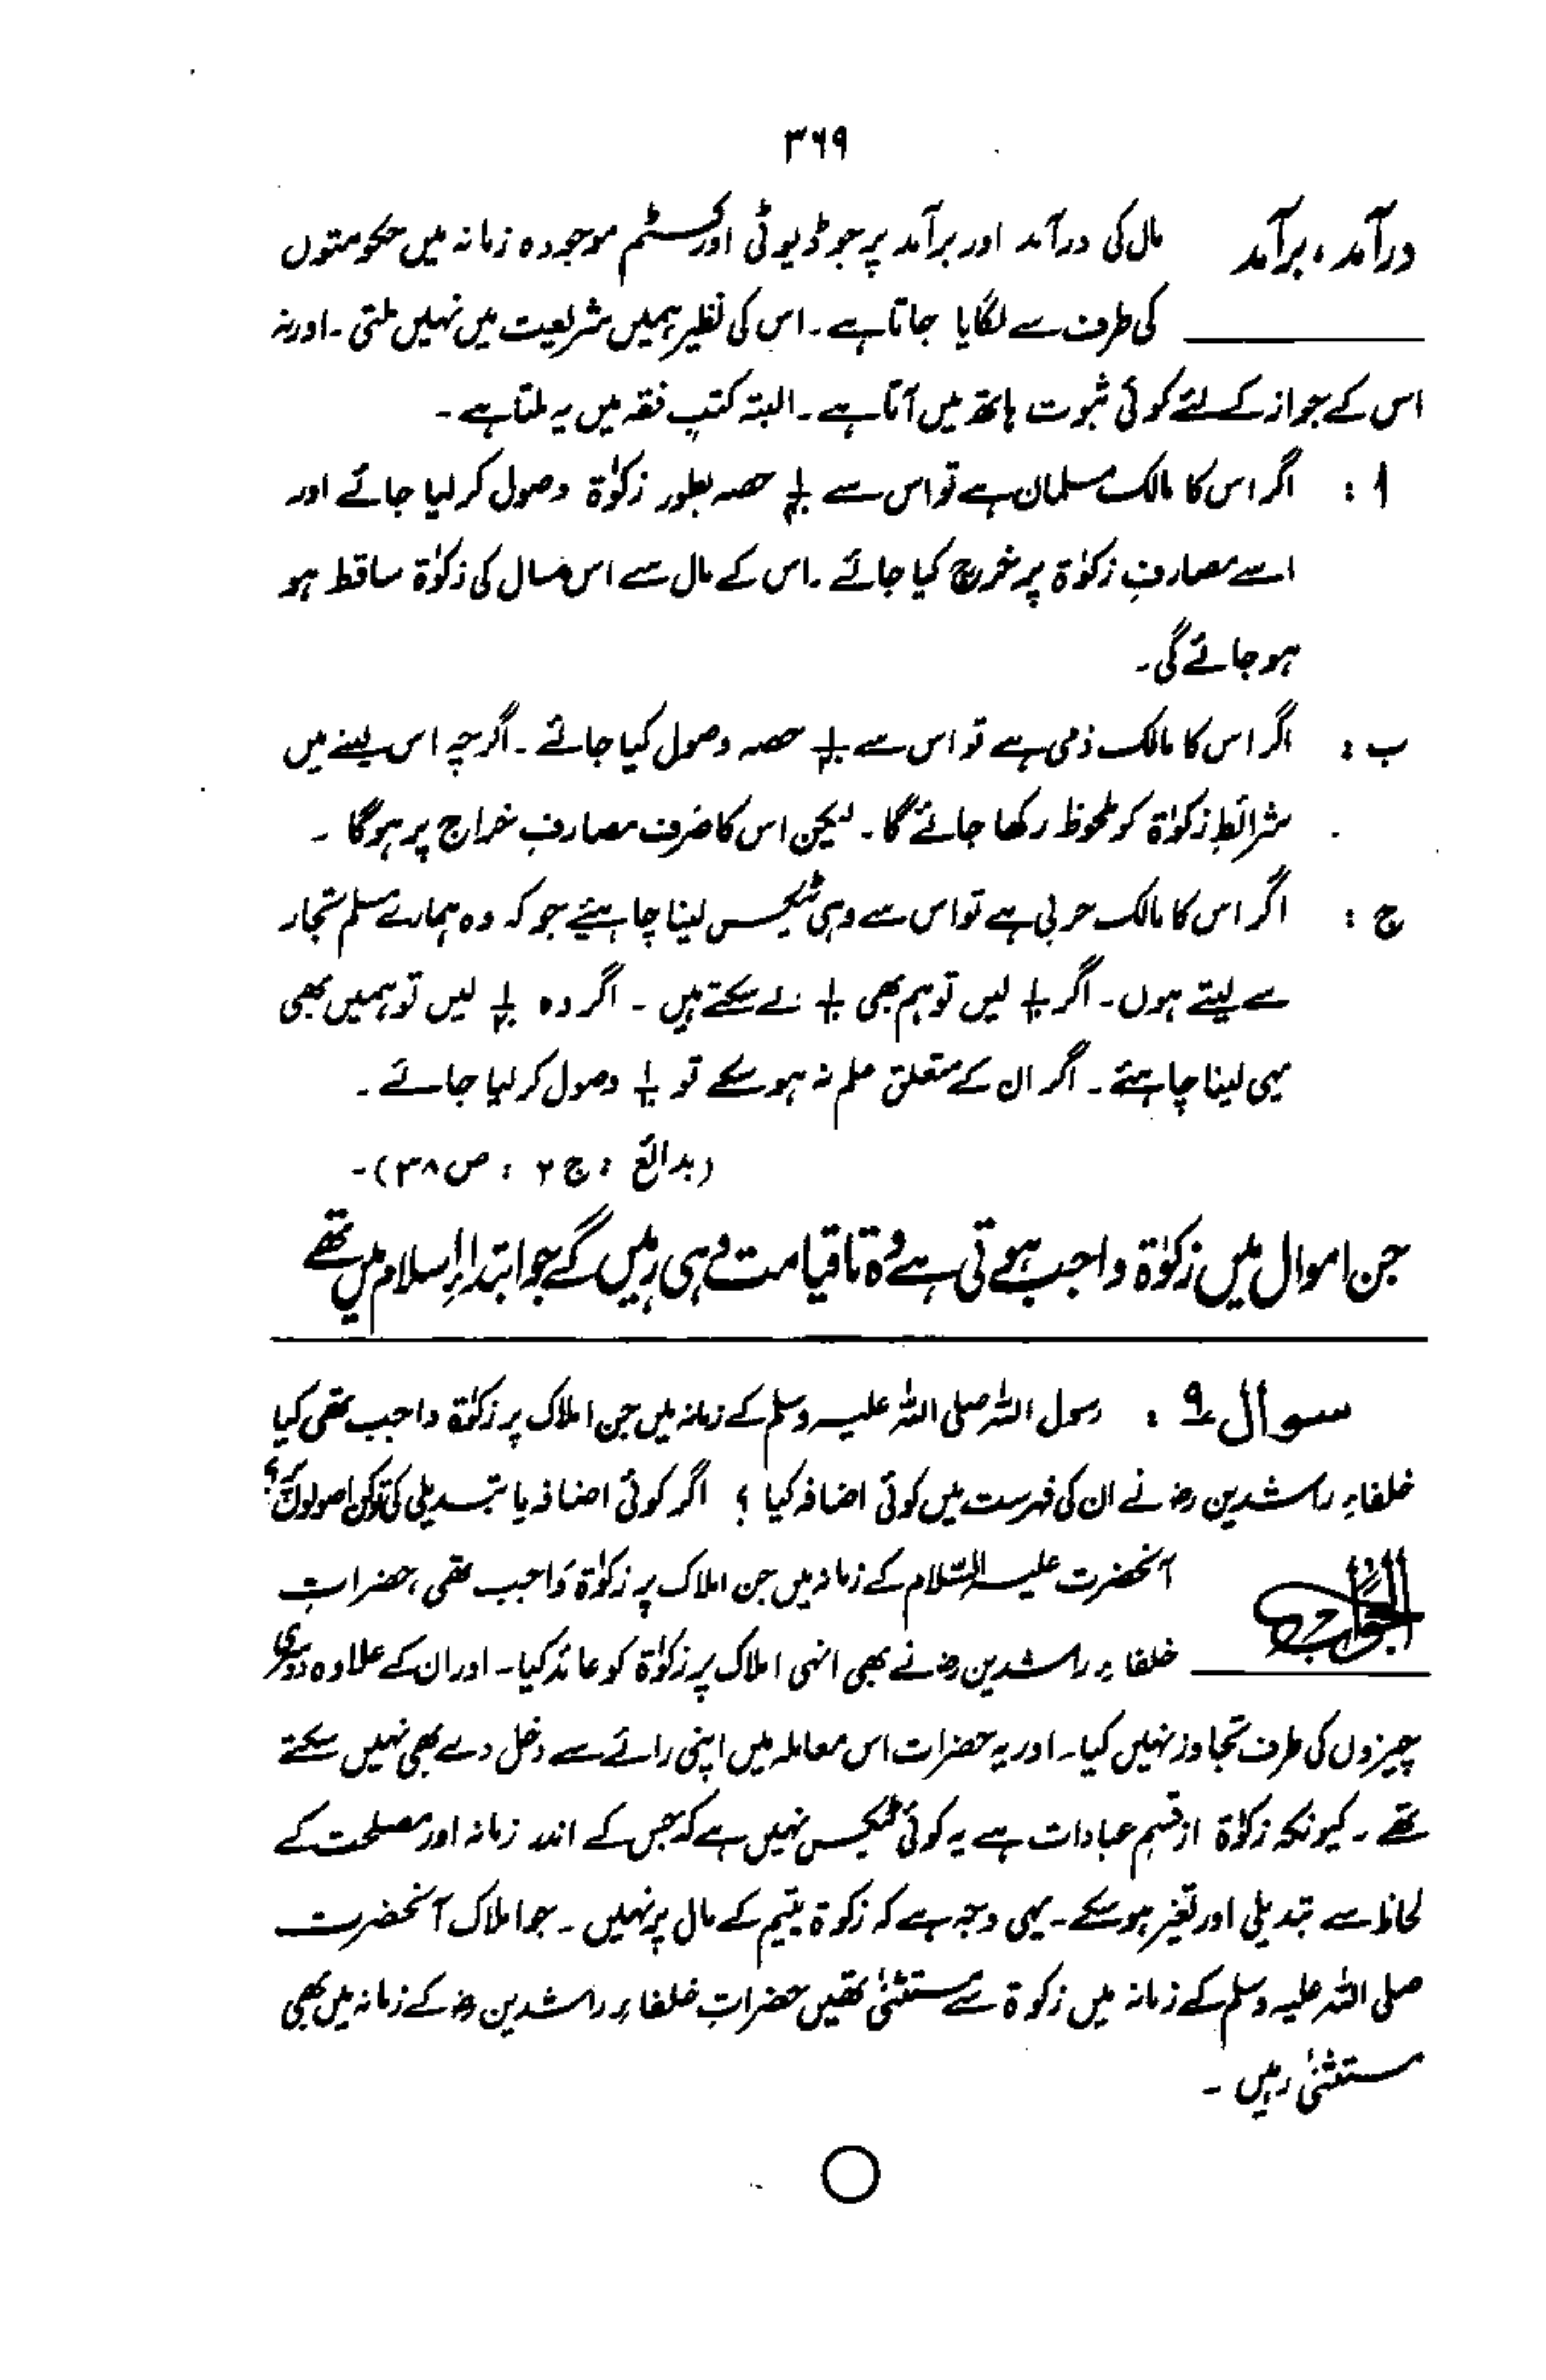 ۳۶۹
درآمد، برآمد مال کی درآمد اور برآمد پر جو ڈیوٹی اور کسٹم موجودہ زمانہ میں حکومتوں
کی طرف سے لگایا جاتا ہے۔ اس کی نظیر ہمیں شریعت میں نہیں ملتی۔ اور نہ
اس کے جواز کے لئے کوئی ثبوت ہاتھ میں آتا ہے۔ البتہ کتبِ فقہ میں یہ ملتا ہے۔
ا : اگر اس کا مالک مسلمان ہے تو اس سے ۱/۴۰ حصہ بطور زکوٰۃ وصول کر لیا جائے اور
اسے مصارفِ زکوٰۃ پر خرچ کیا جائے۔ اس کے مال سے اس سال کی زکوٰۃ ساقط ہو
ہو جائے گی۔
ب : اگر اس کا مالک ذمی ہے تو اس سے ۱/۲۰ حصہ وصول کیا جائے۔ اگرچہ اس لینے میں
شرائطِ زکوٰۃ کو ملحوظ رکھا جائے گا۔ لیکن اس کا صرف مصارفِ خراج پر ہو گا۔
ج : اگر اس کا مالک حربی ہے تو اس سے وہی ٹیکس لینا چاہیئے جو کہ وہ ہمارے مسلم تجار
سے لیتے ہوں۔ اگر لیں تو ہم بھی لے سکتے ہیں۔ اگر وہ لیں تو ہمیں بھی
یہی لینا چاہئے۔ اگر ان کے متعلق علم نہ ہو سکے تو ۱/۱۰ وصول کر لیا جائے۔
(بدائع : ج ۲ : ص ۳۸)۔
جن اموال میں زکوٰۃ واجب ہوتی ہے وہ تا قیامت وہی رہیں گے جو ابتداءِ اسلام میں تھے
سوال ۹ : رسول اللہ صلی اللہ علیہ وسلم کے زمانہ میں جن املاک پر زکوٰۃ واجب تھی کیا
خلفاءِ راشدین رض نے ان کی فہرست میں کوئی اضافہ کیا ؟ اگر کوئی اضافہ یا تبدیلی کی تو کن اصولوں پر کی؟
الجواب آنحضرت علیہ السّلام کے زمانہ میں جن املاک پر زکوٰۃ واجب تھی، حضراتِ
خلفاءِ راشدین رض نے بھی انہی املاک پر زکوٰۃ کو عائد کیا۔ اور ان کے علاوہ دوسری
چیزوں کی طرف تجاوز نہیں کیا۔ اور یہ حضرات اس معاملہ میں اپنی رائے سے دخل دے بھی نہیں سکتے
تھے۔ کیونکہ زکوٰۃ از قسم عبادات ہے یہ کوئی ٹیکس نہیں ہے کہ جس کے اندر زمانہ اور مصلحت کے
لحاظ سے تبدیلی اور تغیر ہو سکے۔ یہی وجہ ہے کہ زکوۃ یتیم کے مال پر نہیں۔ جو املاک آنحضرت
صلی اللہ علیہ وسلم کے زمانہ میں زکوۃ سے مستثنیٰ تھیں حضراتِ خلفاءِ راشدین رض کے زمانہ میں بھی
مستثنیٰ رہیں۔